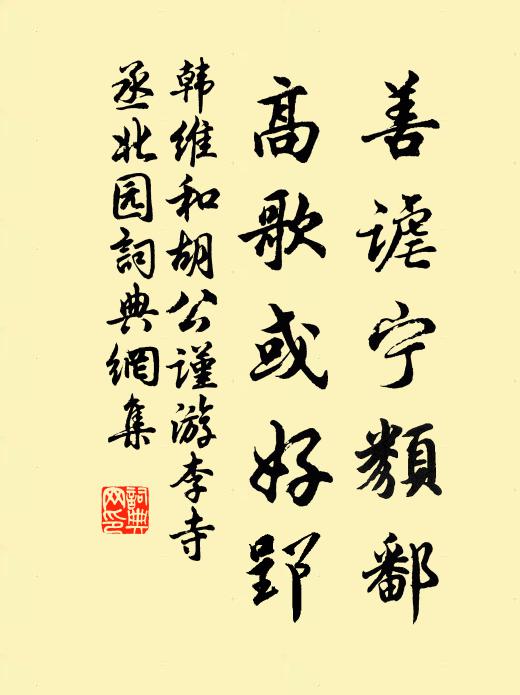 善谑宁類鄱
高歌或好郢
韩维和胡公谨游李寺
丞北园詞典網集
詞典
网印